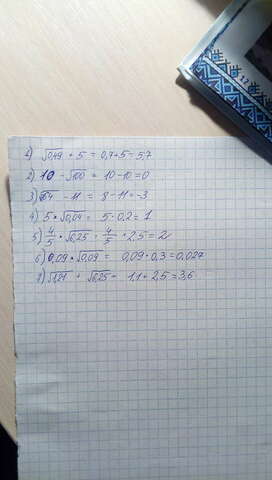 1) √0,49 + 5 = 0,7+5 = 5,7
2) 10 - √100 = 10-10=0
3) √64 - 11 = 8-11=-3
4) 5 · √0,04 = 5·0,2=1
5) 4/5 · √6,25 = 4/5 · 2,5 = 2
6) 0,09 · √0,09 = 0,09·0,3=0,027
7) √1,21 + √6,25 = 1,1+2,5=3,6
12